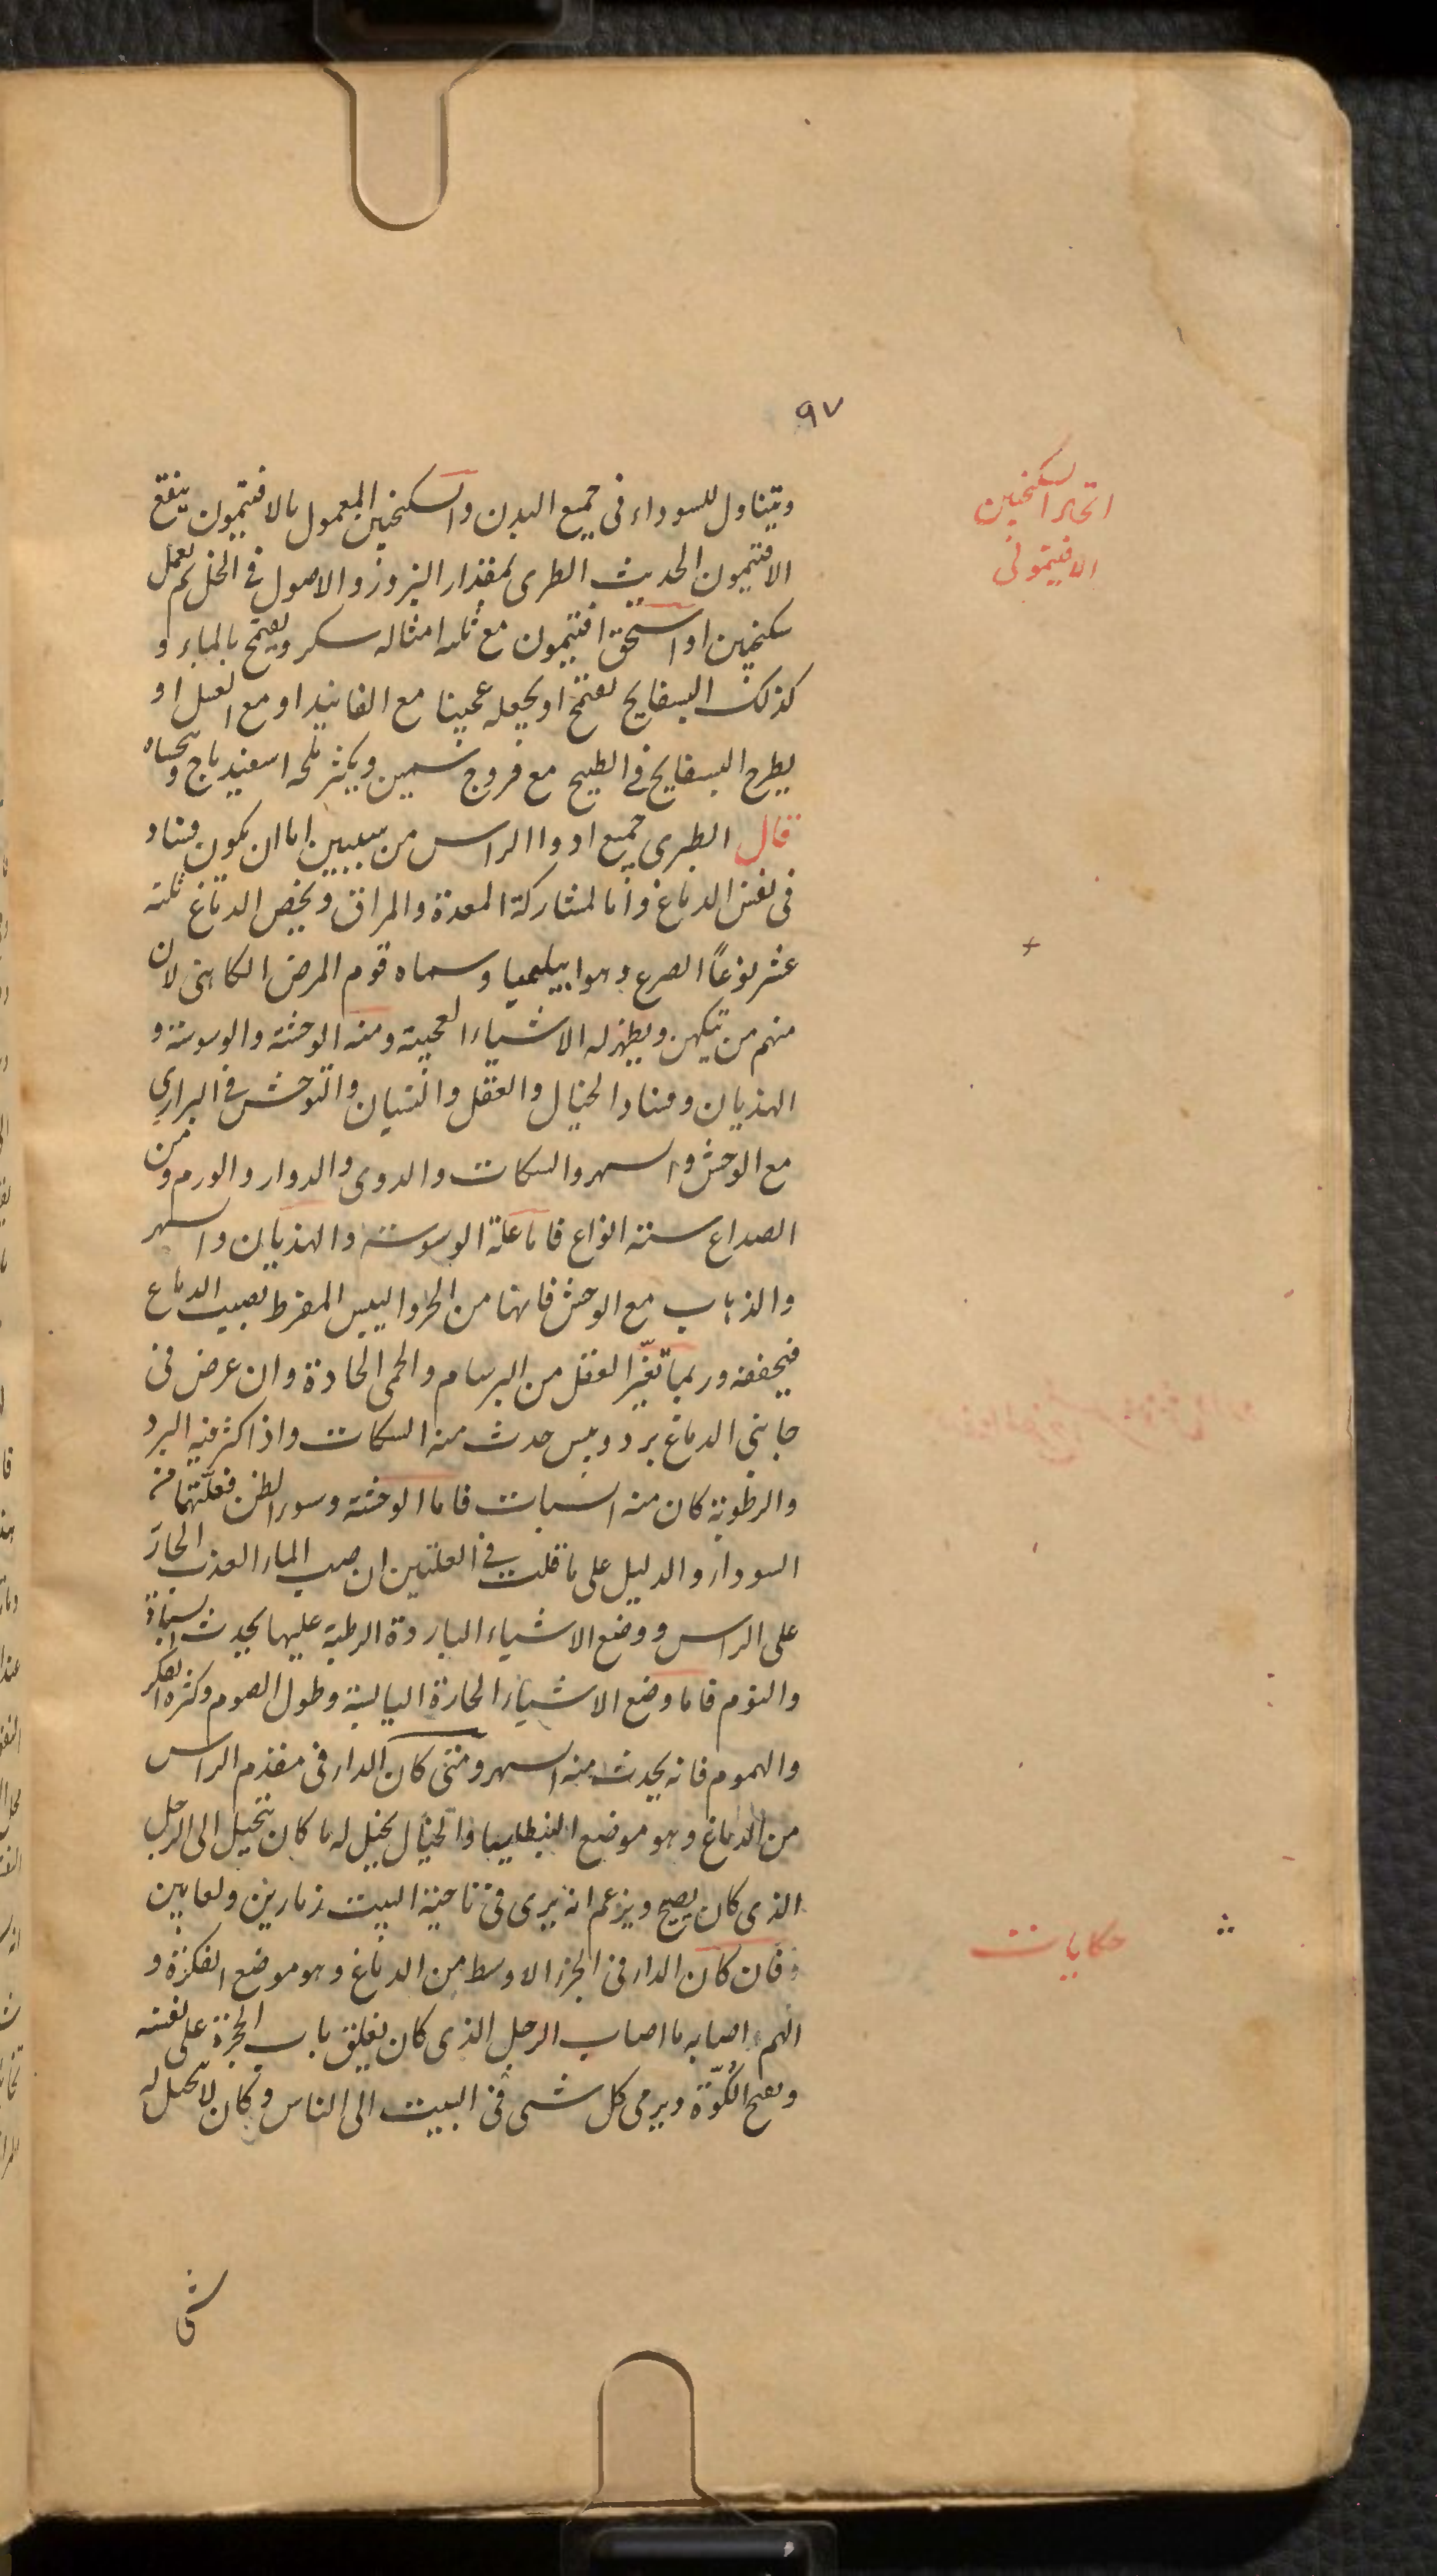 ٩٧
اتخاذ السكنجبين
الافتيمونى
ويتناول للسوداء فى جميع البدن والسكنجبين المعمول بالافتيمون ينقع
الافتيمون الحديث الطرى بمقدار البزور والاصول فى الخل ثم يعمل
سكنجبين او اسحق افتيمون مع ثلثة امثاله سكر ويقتمح بالماء و
كذلك البسفايج يقتمح او يجعله عجينا مع الفانيد او مع العسل او
يطرح البسفايج فى الطبيخ مع فروج سمين ويكثر ملحه اسفيدباج ويحساه
قال الطبرى جميع ادواا الراس من سببين اما ان يكون فساد
فى نفس الدماغ واما لمشاركة المعدة والمراق ويخص الدماغ ثلثة
عشر نوعًا الصرع وهو ابيلميا وسماه قوم المرض الكاهنى لان
منهم من يتكهن ويظهر له الاشياء العجيبة ومنه الوحشة والوسوسة و
الهذيان وفساد الخيال والعقل والنسيان والتوحش فى البرارى
مع الوحش والسهر والسكات والدوى والدوار والورم ومن
الصداع ستة انواع فاما علة الوسوسة والهذيان والسهر
والذهاب مع الوحش فانها من الحر واليبس المفرط يصيب الدماغ
فيجففه وربما تغيّر العقل من البرسام والحمى الحادة وان عرض فى
جانبى الدماغ برد ويبس حدث منه السكات واذا كثر فيه البرد
والرطوبة كان منه السبات فاما الوحشة وسوء الظن فعلّتهما من
السوداء والدليل على ما قلت فى العلتين ان صب الماء العذب الحارّ
على الراس ووضع الاشياء الباردة الرطبة عليها يحدث
والنوم فاما وضع الاشياء الحارة اليابسة وطول الصوم وكثرة الفكر
والهموم فانه يحدث منه السهر ومتى كان الداء فى مقدم الراس
من الدماغ وهو موضع الفنطاسيا والخيال يخيل له ما كان يتخيل الى الرجل
الذى كان يصيح ويزعم انه يرى فى ناحية البيت زمارين ولعابين
حكايات
فان كان الداء فى الجزء الاوسط من الدماغ وهو موضع الفكرة و
الهم اصابه ما اصاب الرجل الذى كان يغلق باب الحجرة على نفسه
ويفتح الكُوّة ويرمى كل شى فى البيت الى الناس وكان لا يخيل له
شى